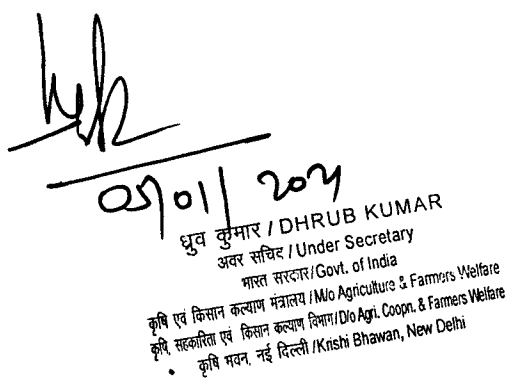 05/01/2021
ध्रुव कुमार / DHRUB KUMAR
अवर सचिव / Under Secretary
भारत सरकार/Govt. of India
कृषि एवं किसान कल्याण मंत्रालय / M/o Agriculture & Farmers Welfare
कृषि, सहकारिता एवं किसान कल्याण विभाग/D/o Agri. Coopn. & Farmers Welfare
कृषि भवन, नई दिल्ली/Krishi Bhawan, New Delhi